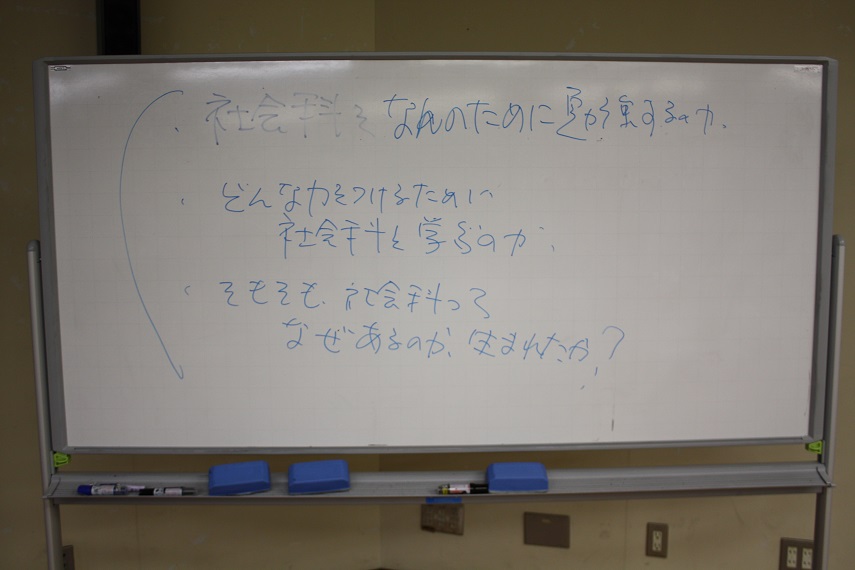 ・社会科をなんのために勉強するのか.
・どんな力をつけるために
社会科を学ぶのか、
・そもそも、社会科って
なぜあるのか、生まれたか?